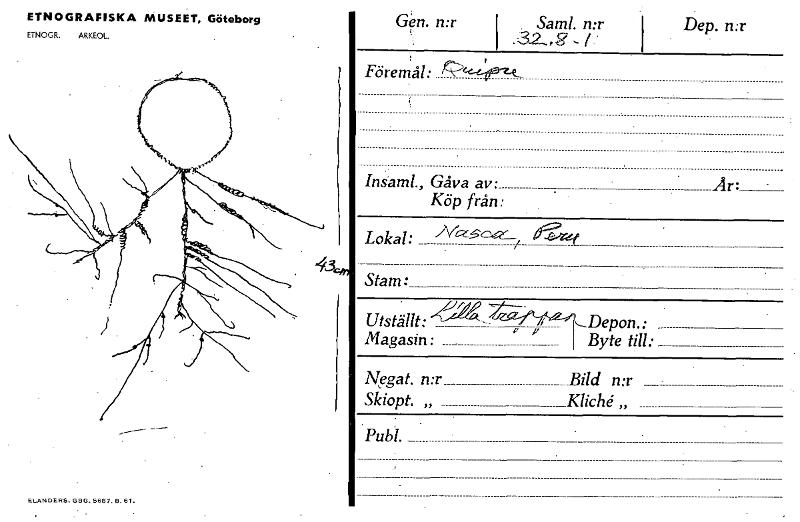 ETNOGRAFISKA MUSEET, Göteborg
ETNOGR. ARKEOL.
43cm
ELANDERS. GBG. 5667. B. 61.
Gen. n:r Saml. n:r Dep. n:r
32.8-1
Föremål: Quipu
Insaml., Gåva av: År:
Köp från:
Lokal: Nasca, Peru
Stam:
Utställt: Lilla trappan Depon.:
Magasin: Byte till:
Negat. n:r Bild n:r
Skiopt. „ Kliché „
Publ.